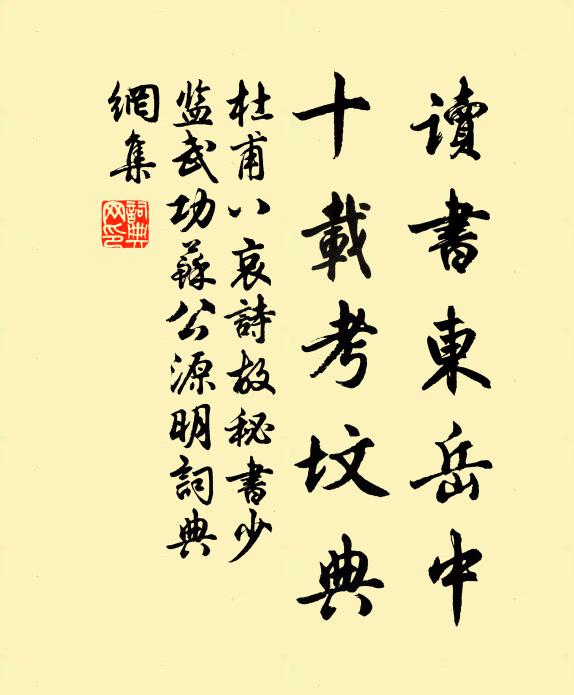 讀書東岳中
十載考墳典
杜甫八哀詩故秘書少
監武功蘇公源明詞典
網集
詞典
网印